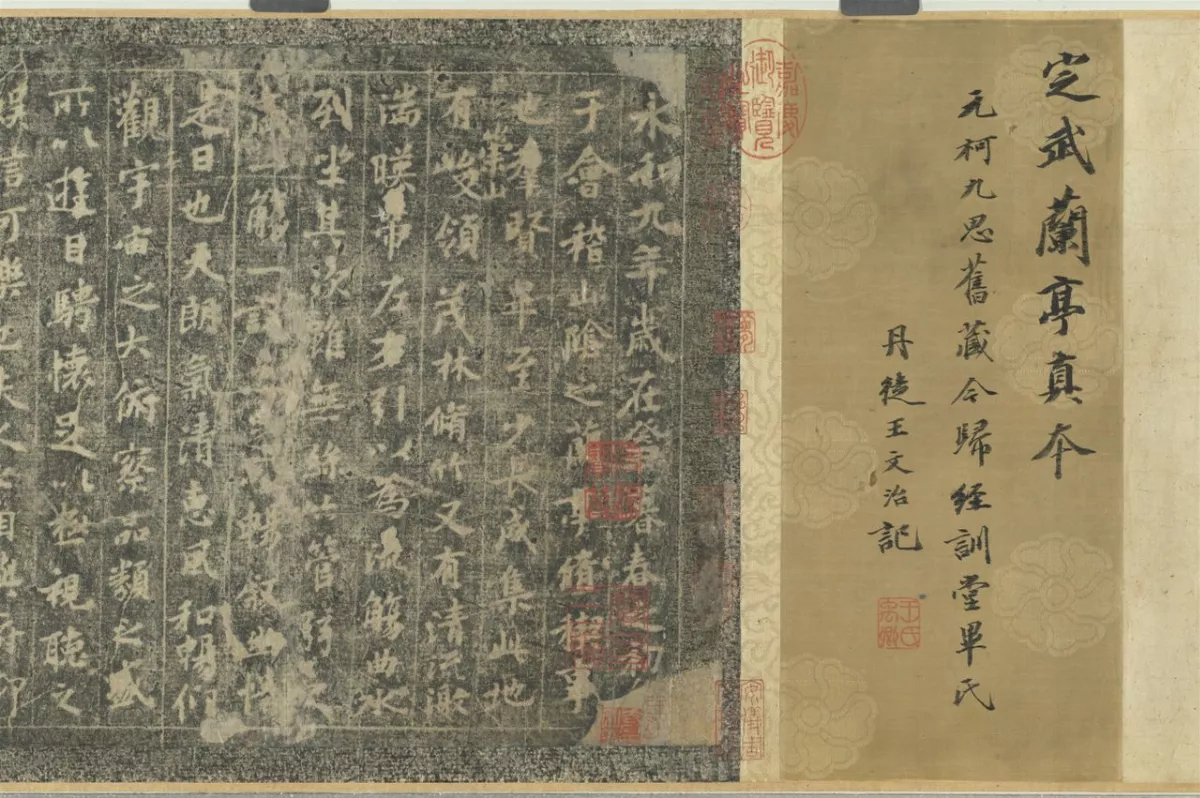 定武蘭亭真本
元柯九思舊藏今歸經訓堂畢氏
丹徒王文治記
嘉慶御覽
永和九年歲在癸暮春之初
于會稽山陰之蘭亭脩稧事
也群賢畢至少長咸集此地
崇山
有峻領茂林脩竹又有清流激
湍暎帶左右引以為流觴曲水
列坐其次雖無絲竹管弦之
盛一觴一詠亦足暢敘幽情
是日也天朗氣清惠風和暢仰
觀宇宙之大俯察品類之盛
所以遊目騁懷足以極視聽之
娛信可樂也夫人之相與俯仰